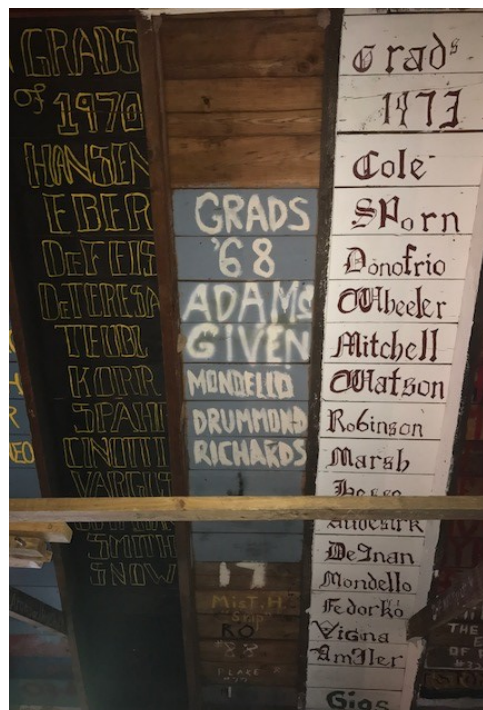 GRADS
of 1970
HANSEN
EBER
DeFEIS
DeTERESA
TEUBL
KORR
SPAHI
CINOTTI
SMITH
SNOW
GRADS
'68
ADAMS
GIVEN
MONDELLO
DRUMMOND
RICHARDS
17
MisT.H.
RO
88
Grads
1973
Cole
SPorn
Donofrio
Wheeler
Mitchell
Watson
Robinson
Marsh
Hesse
DeGnan
Mondello
Fedorko
Vigna
Amller
Gios
THE
OF